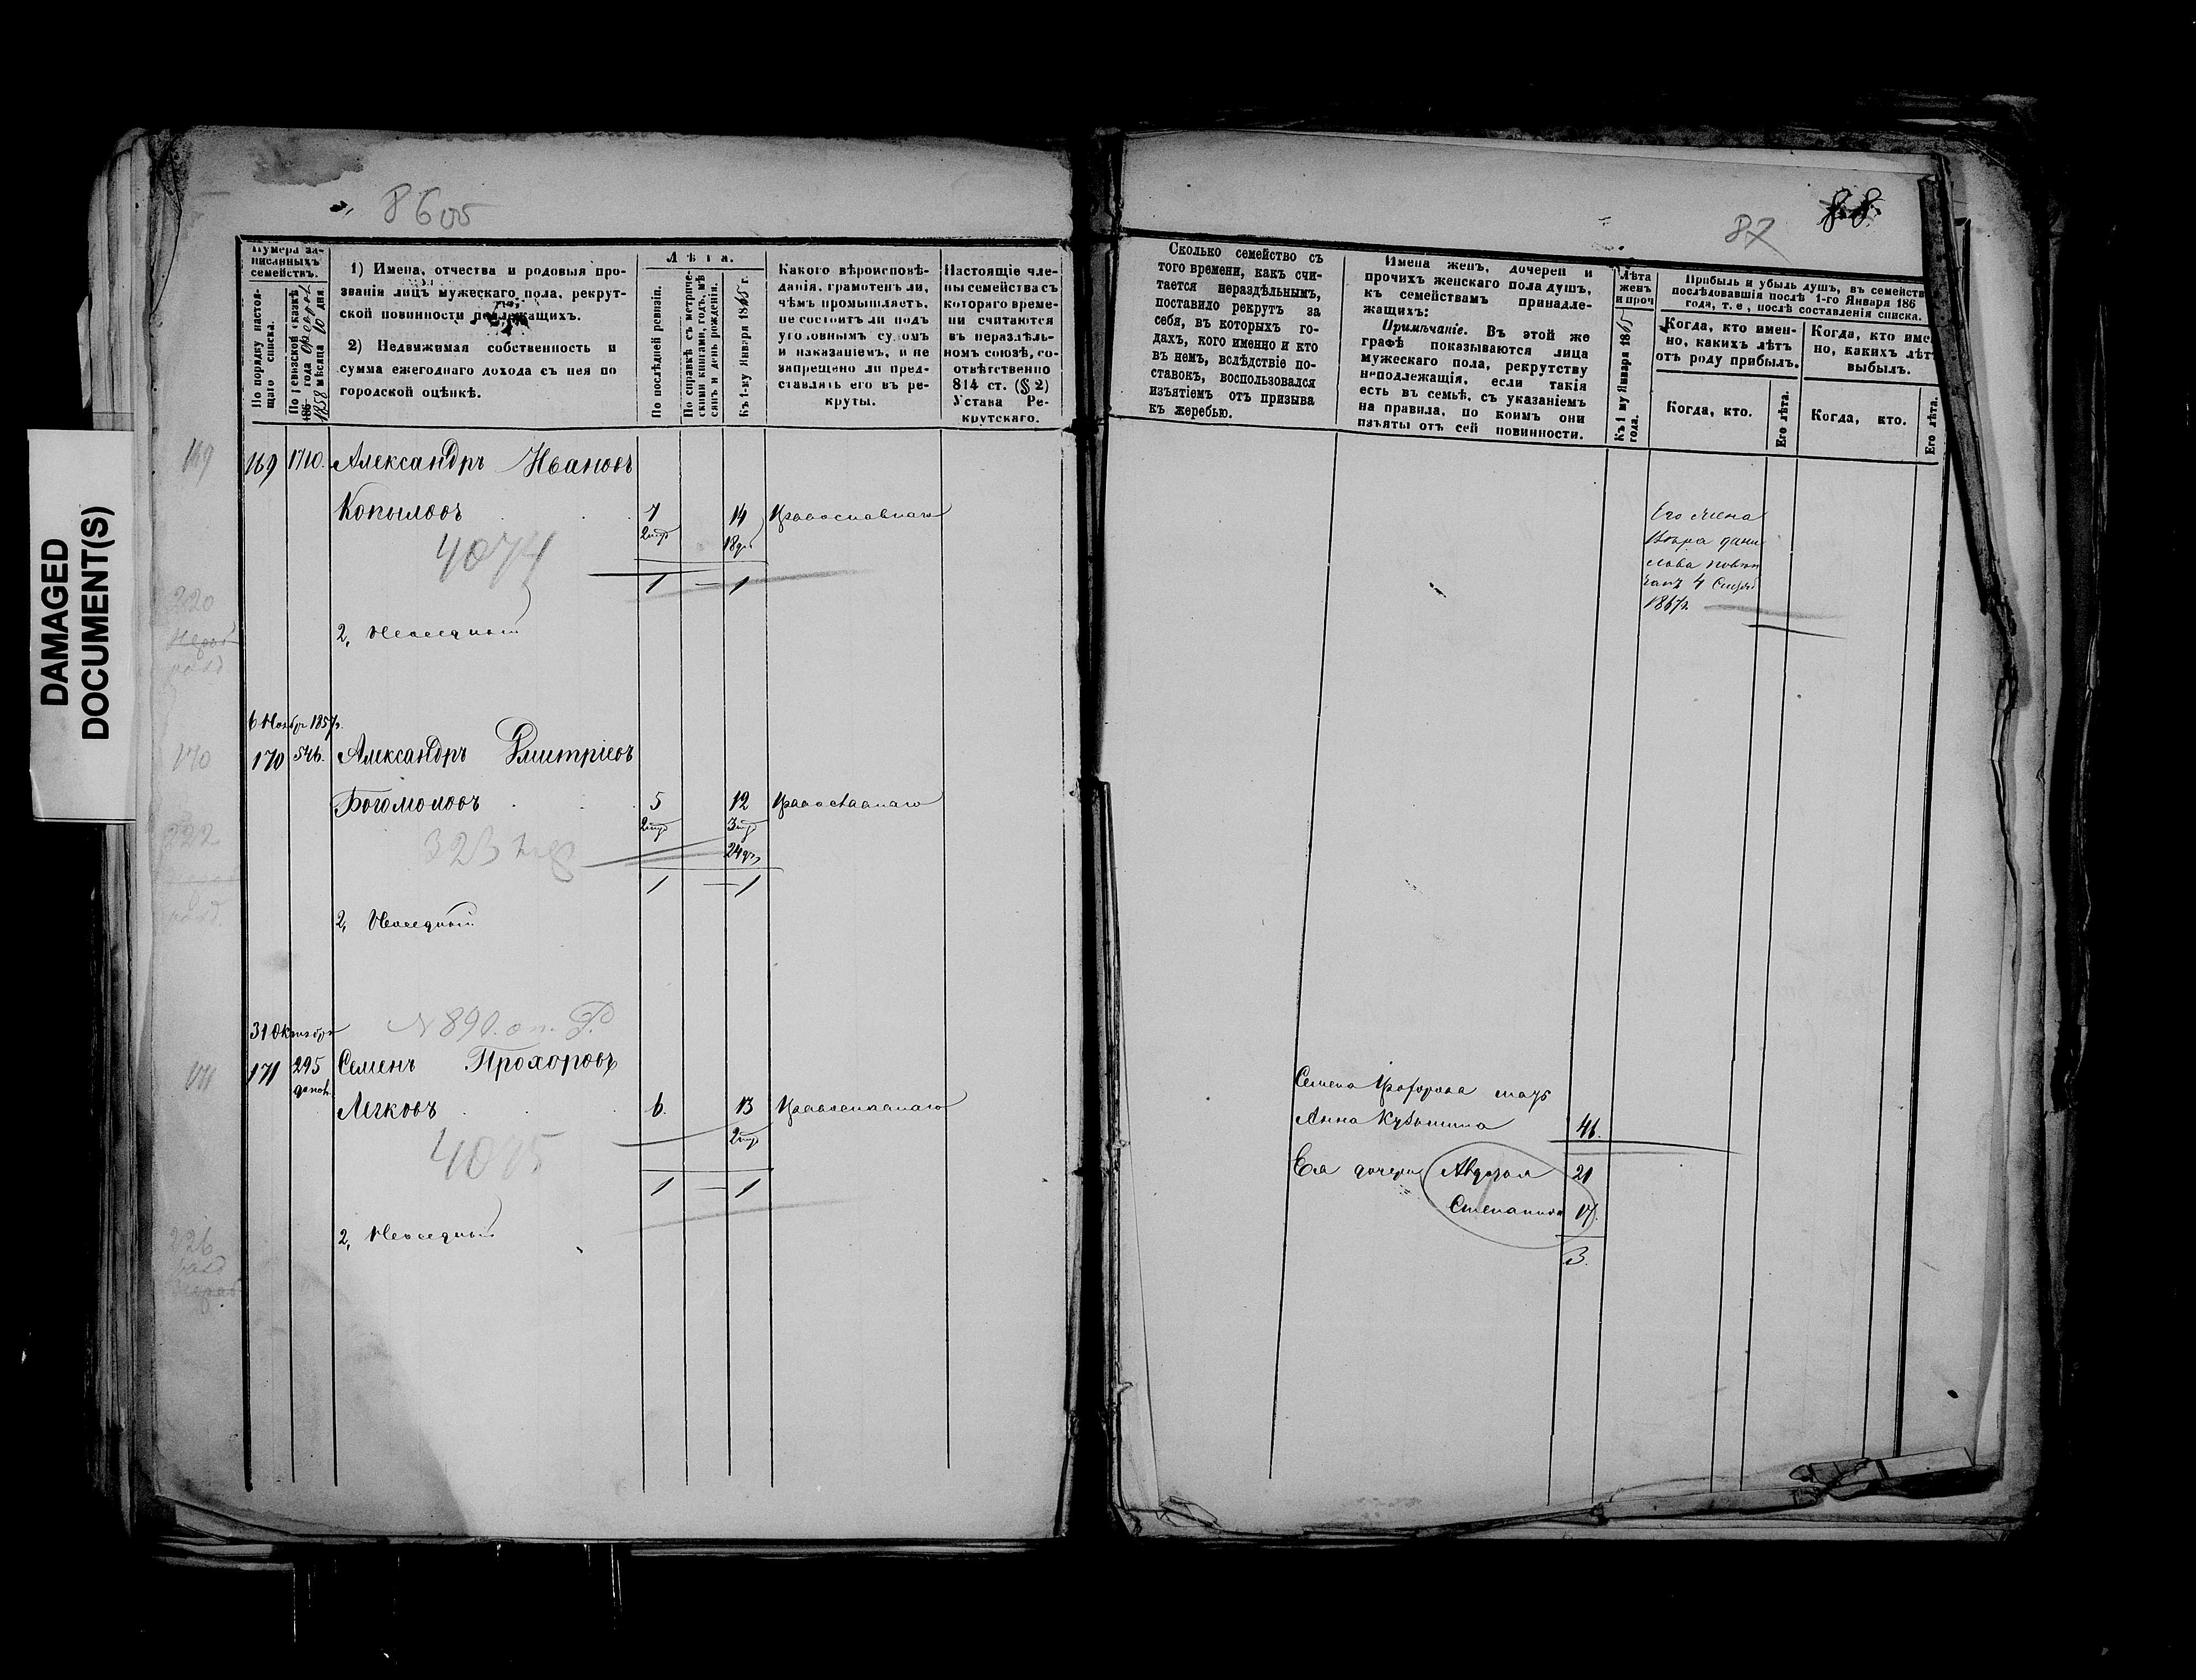 DAMAGED
DOCUMENT(S)
8605
Нумера за-
писанныхъ
семействъ.
По порядку настоя-
щаго списка.
По ревизской сказкѣ
186 года
1858 мѣсяца 10 дня
1) Имена, отчества и родовыя про-
званія лицъ мужескаго пола, рекрут-
ской повинности подлежащихъ.
2) Недвижимая собственность и
сумма ежегоднаго дохода съ нея по
городской оцѣнкѣ.
Лѣта.
По послѣдней ревизіи.
По справкѣ съ метриче-
скими книгами, годъ, мѣ-
сяцъ и день рожденія.
Къ 1-му Января 1865 г.
Какого вѣроисповѣ-
данія, грамотенъ ли,
чѣмъ промышляетъ,
не состоитъ ли подъ
уголовнымъ судомъ
и наказаніемъ, и не
запрещено ли пред-
ставлять его въ ре-
круты.
Настоящіе чле-
ны семейства съ
котораго време-
ни считаются
въ нераздѣль-
номъ союзѣ, со-
отвѣтственно
814 ст. (§ 2)
Устава Ре-
крутскаго.
169
169 1710. Александръ Ивановъ
Копыловъ 7 14 Православнаго
18
4074
1 — 1
220
2, Неоседлый
6 Ноября 1857г.
170
170 546. Александръ Дмитріевъ
Богомоловъ 5 12 Православнаго
222
323
24
1 — 1
2, Неоседлый
31 Октября
N 890.
171
171 295 Семенъ Прохоровъ
допол.
Легковъ 6. 13 Православнаго
4075
1 — 1
226
2, Неоседлый
87
88.
Сколько семейство съ
того времени, какъ счи-
тается нераздѣльнымъ,
поставило рекрутъ за
себя, въ которыхъ го-
дахъ, кого именно и кто
въ немъ, вслѣдствіе по-
ставокъ, воспользовался
изъятіемъ отъ призыва
къ жеребью.
Имена женъ, дочерей и
прочихъ женскаго пола душъ,
къ семействамъ принадле-
жащихъ:
Примѣчаніе. Въ этой же
графѣ показываются лица
мужескаго пола, рекрутству
неподлежащія, если такія
есть въ семьѣ, съ указаніемъ
на правила, по коимъ они
изъяты отъ сей повинности.
Лѣта
женъ
и проч
Къ 1 му Января 1865
года.
Прибыль и убыль душъ, въ семейств
послѣдовавшія послѣ 1-го Января 186
года, т. е., послѣ составленія списка.
Когда, кто имен-
но, какихъ лѣтъ
отъ роду прибылъ.
Когда, кто имен
но, какихъ лѣтъ
выбылъ.
Когда, кто.
Его лѣта.
Когда, кто.
Его лѣта.
Его жена
Вѣра Дани
лова повѣн
чанъ 4
1867г.
Семена Прохорова мать
Анна Кузьмина 46.
Ея дочери Авдотья 21
Степанида 17.
3.